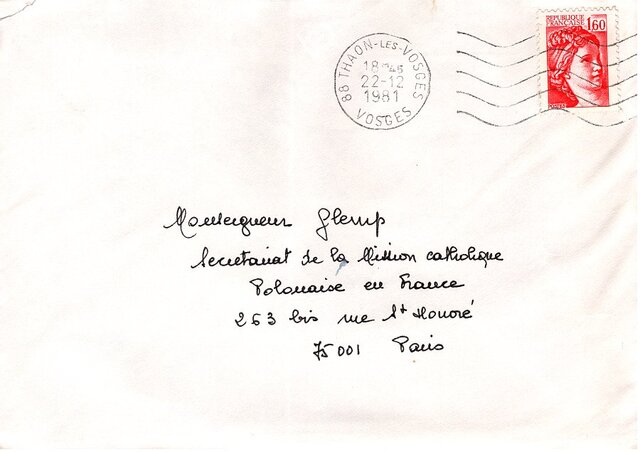 88 THAON-LES-VOSGES
18H45
22-12
1981
VOSGES
REPUBLIQUE
FRANCAISE 1,60
POSTES
Monseigneur Glemp
Secretariat de la Mission catholique
Polonaise en France
263 bis rue St Honoré
75001 Paris